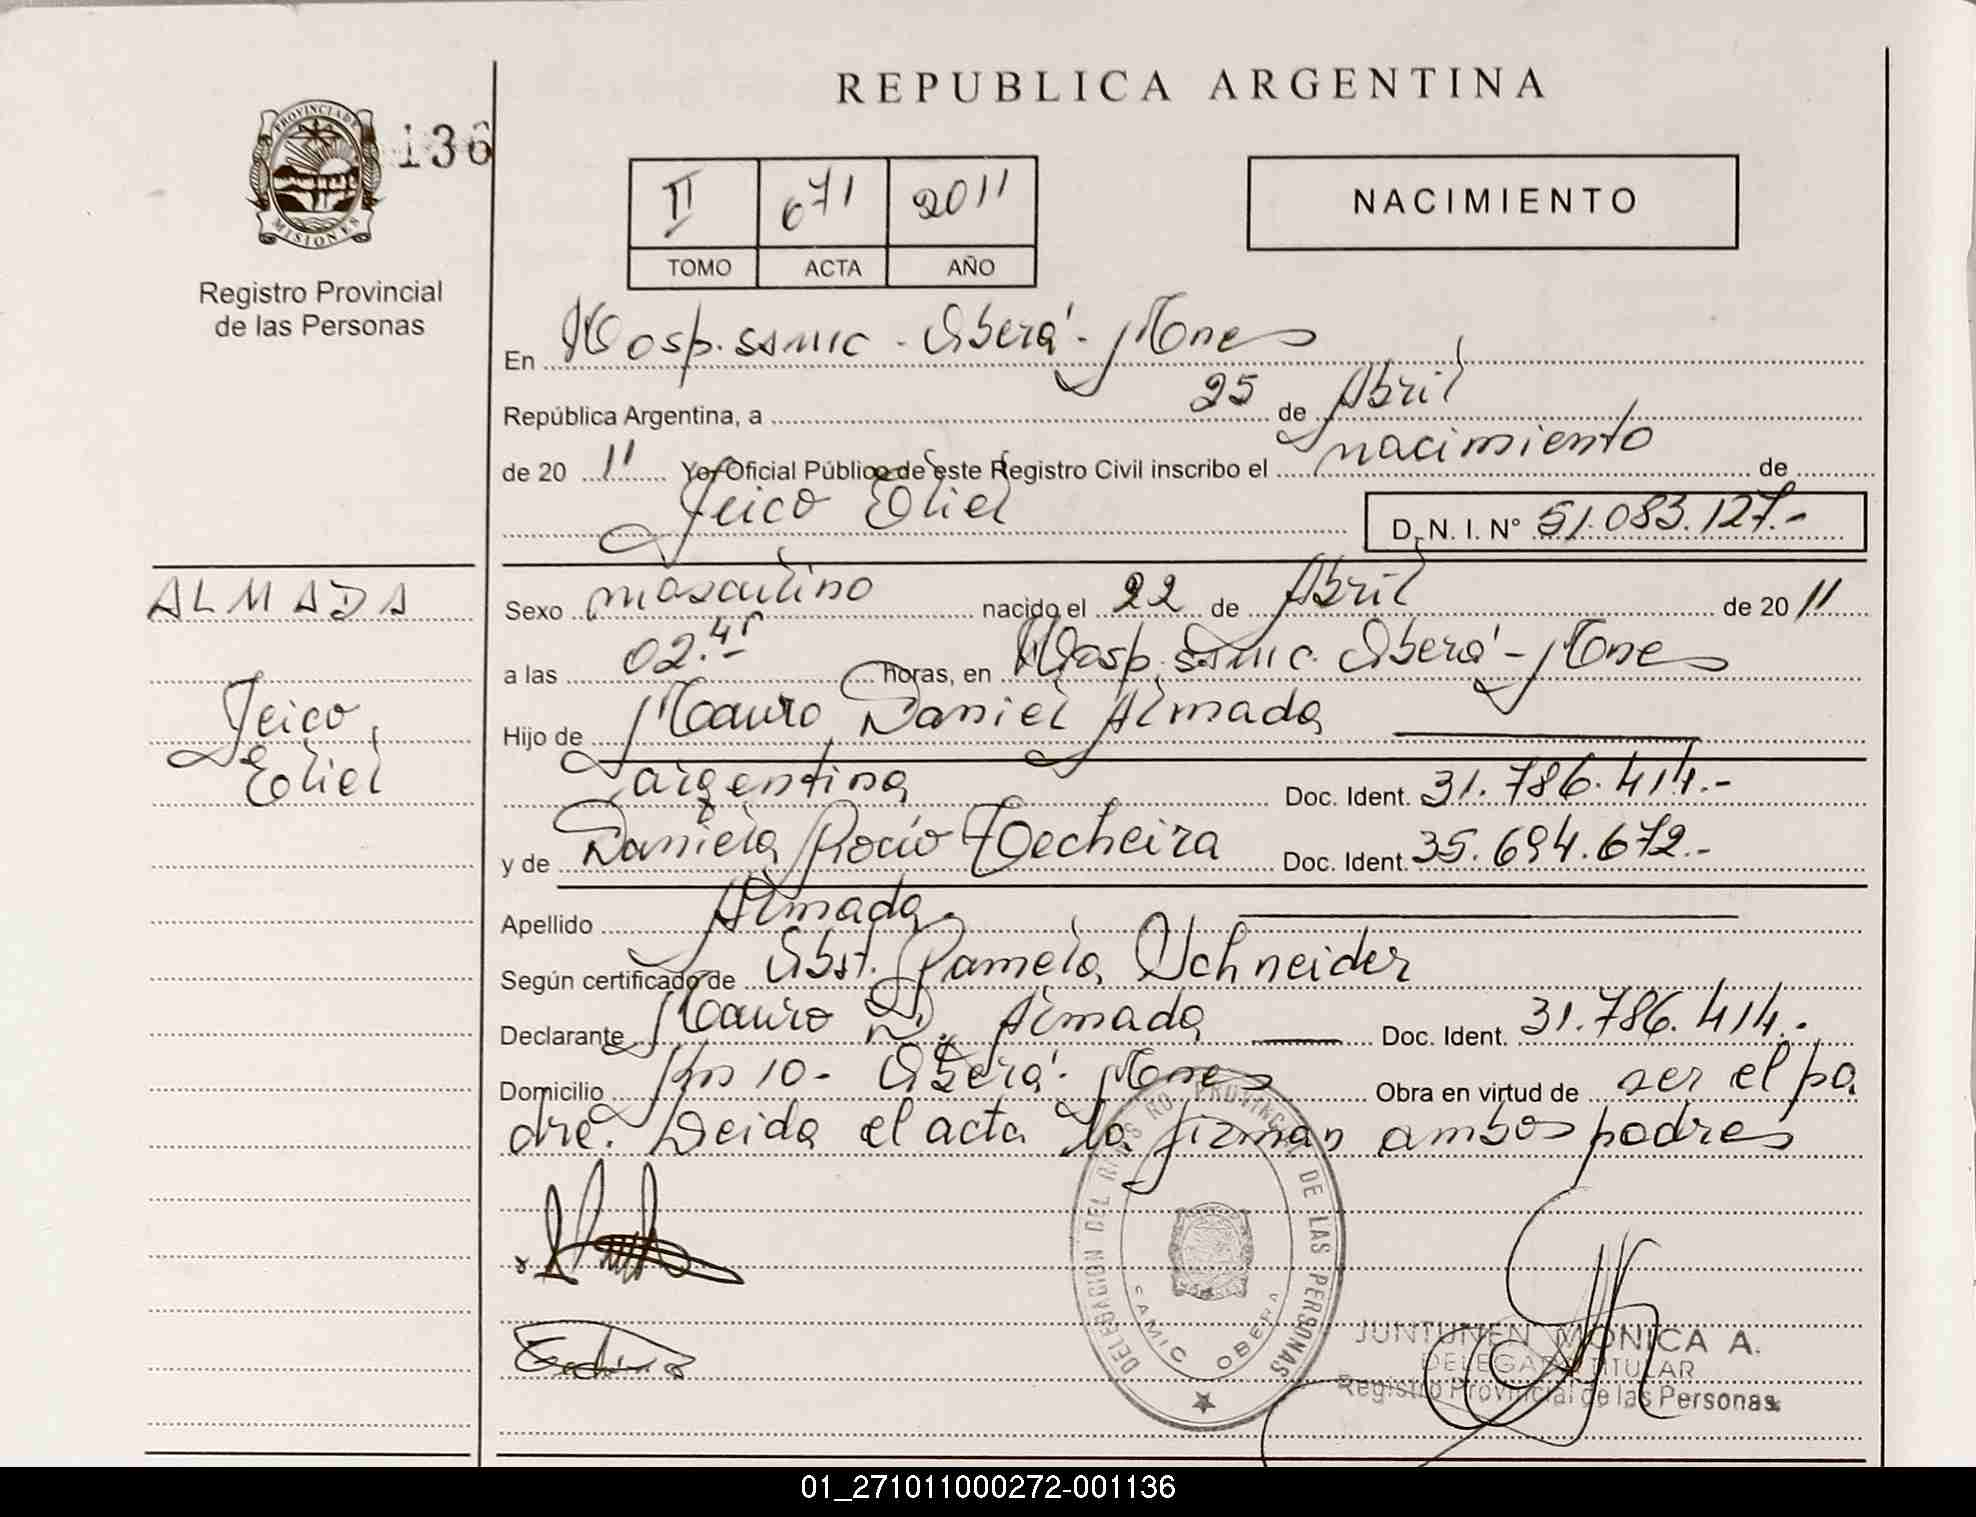 REPUBLICA ARGENTINA
PROVINCIA DE
MISIONES
136
Registro Provincial
de las Personas
II 671 2011
TOMO ACTA AÑO
NACIMIENTO
En Hosp. SAMIC - Oberá - Mnes
República Argentina, a 25 de Abril
de 20 11 Yo, Oficial Público de este Registro Civil inscribo el nacimiento de
Jeico Eliel D. N. I. Nº 51.083.127.-
ALMADA
Jeico,
Eliel
Sexo masculino nacido el 22 de Abril de 20 11
a las 02.45 horas, en Hosp. SAMIC. Oberá - Mnes
Hijo de Mauro Daniel Almada
argentina Doc. Ident. 31.786.414.-
y de Daniela Rocío Techeira Doc. Ident. 35.694.672.-
Apellido Almada.
Según certificado de Obst. Pamela Schneider
Declarante Mauro D. Almada Doc. Ident. 31.786.414.-
Domicilio Km 10 - Oberá - Mnes Obra en virtud de ser el pa
dre. Leida el acta la firman ambos padres
DELEGACION DEL REGISTRO PROVINCIAL DE LAS PERSONAS
SAMIC OBERA
JUNTUNEN MONICA A.
DELEGADA TITULAR
Registro Provincial de las Personas
01_271011000272-001136